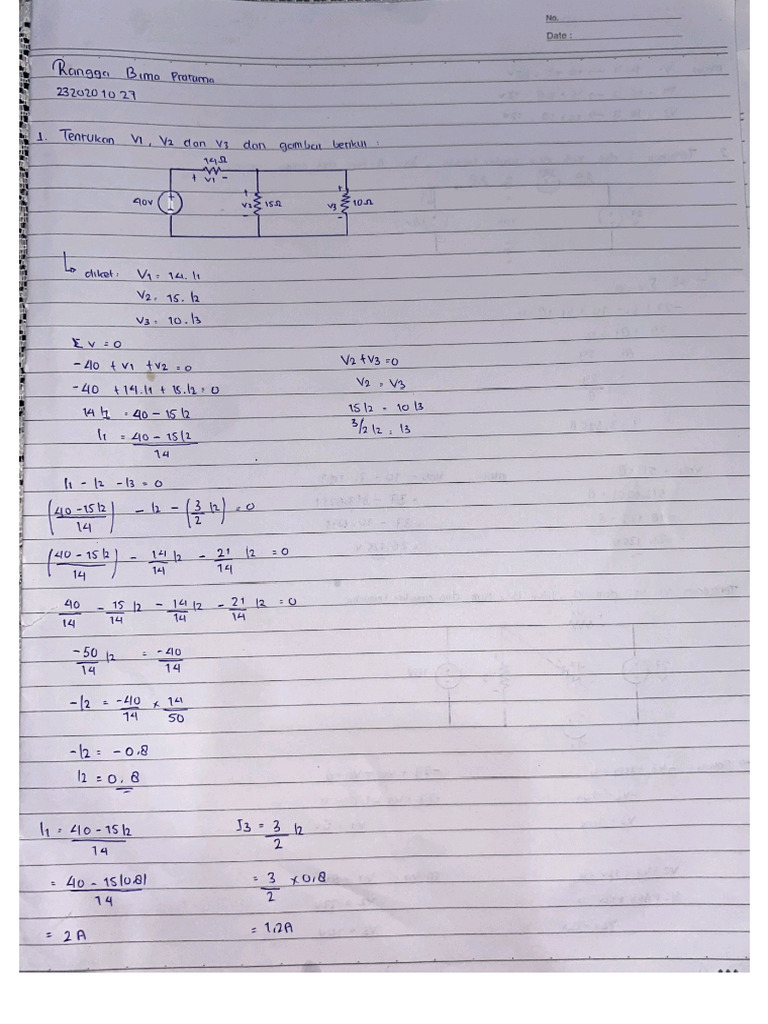 No.
Date :
Rangga Bima Pratama
23202010 27
1. Tentukan V1, V2 dan V3 dan gambar berikut :
14Ω
+ V1 -
40V
+
V2
-
15Ω
+
V3
-
10Ω
diket: V1 = 14.I1
V2 = 15.I2
V3 = 10.I3
Σv = 0
-40 + V1 + V2 = 0
-40 + 14.I1 + 15.I2 = 0
14I1 = 40 - 15I2
I1 = 40 - 15I2
14
V2 + V3 = 0
V2 = V3
15I2 = 10I3
3/2 I2 = I3
I1 - I2 - I3 = 0
(40 - 15I2 / 14) - I2 - (3/2 I2) = 0
(40 - 15I2 / 14) - 14/14 I2 - 21/14 I2 = 0
40/14 - 15/14 I2 - 14/14 I2 - 21/14 I2 = 0
-50/14 I2 = -40/14
-I2 = -40/14 x 14/50
-I2 = -0,8
I2 = 0,8
I1 = 40 - 15I2 / 14
= 40 - 15(0.8) / 14
= 2A
I3 = 3/2 I2
= 3/2 x 0,8
= 1,2A